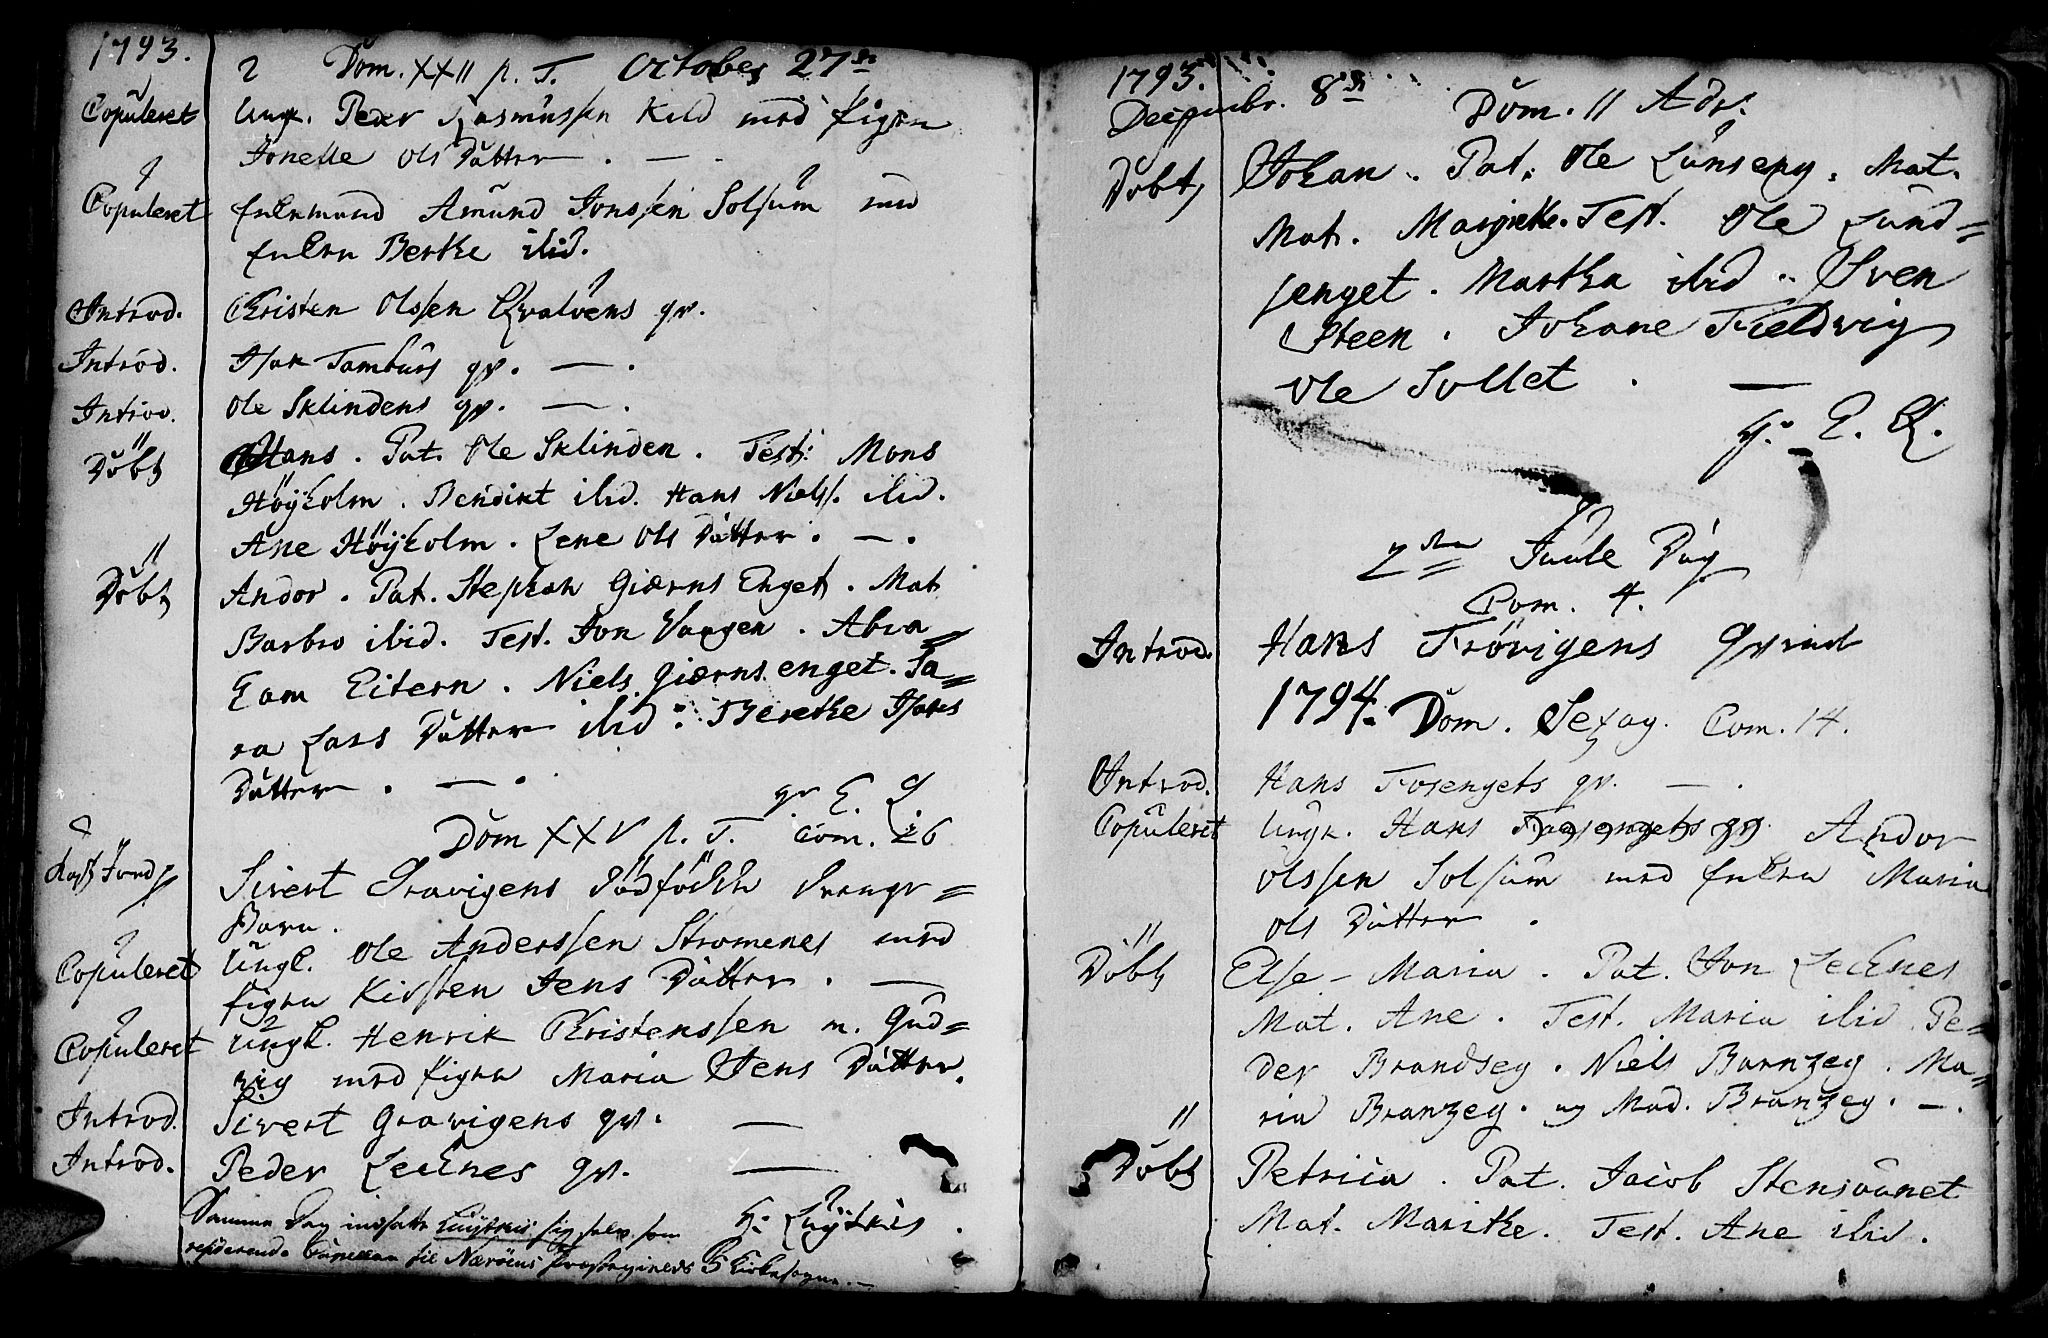 1793.
2 Dom. XXII p. T. October 27de
Copuleret Ungk. Peder Rasmussen Kild med Pigen
Jonelle Ols Datter. —
Copuleret Enkemand Amund Jonssen Solsum med
Enken Berthe ibid.
Introd. Christen Olssen Qvaløens qv.
Introd. Isak Tamburs qv. — .
Introd. Ole Sklindens qv. — .
Döbt Hans. Pat. Ole Sklinden. Test: Mons
Höyholm. Bendikt ibid. Hans Niels. ibid.
Ane Höyholm. Lene Ols Datter. — .
Döbt Andor. Pat. Stephan Giærns Enget. Mat
Barbro ibid. Test. Jon Vaagen. Abra=
ham Eitern. Niels Giærns enget. Sa=
ra Lars Datter ibid. Berethe Isaks
Datter. — .
Dom XXV p. T. Com. 26
Sivert Gravigens dödfödte Drenge=
Barn.
Copuleret Ungk. Ole Anderssen Strømenes med
Pigen Kirsten Jens Datter. —
Copuleret Ungk. Henrik Christenssen m. Gud=
vig med Pigen Maria Jens Datter.
Introd. Sivert Gravigens qv. —
Introd. Peder Lecknes qv. —
Samme Dag indsatte sig selv som
residerende Capellan til Nærøens Præstegields 5 Kirkesogne. —
1793.
Decembr. 8de Dom. II Adv.
Döbt Johan. Pat. Ole Lunseng. Mat.
Mat. Margrethe. Test. Ole Lund=
senget. Martha ibid. Sven
Steen. Johane Fieldvig
Ole Sollet. —
2den Juule Dag
Com. 4.
Introd. Hans Frövigens Qvinde
1794. Dom. Sexag. Com. 14.
Introd. Hans Fosengets qv. — .
Copuleret Ungk. Hans Andor
Olssen Solsum med Enken Maria
Ols Datter.
Döbt Else-Maria. Pat. Jon Lecknes
Mat. Ane. Test. Maria ibid Pe=
der Brandseg. Niels Branzeg. Ma=
ria Branzeg. og Mad. Branzeg. — .
Döbt Petricia. Pat. Jacob Stensaanet
Mat. Marithe. Test. Ane ibid.